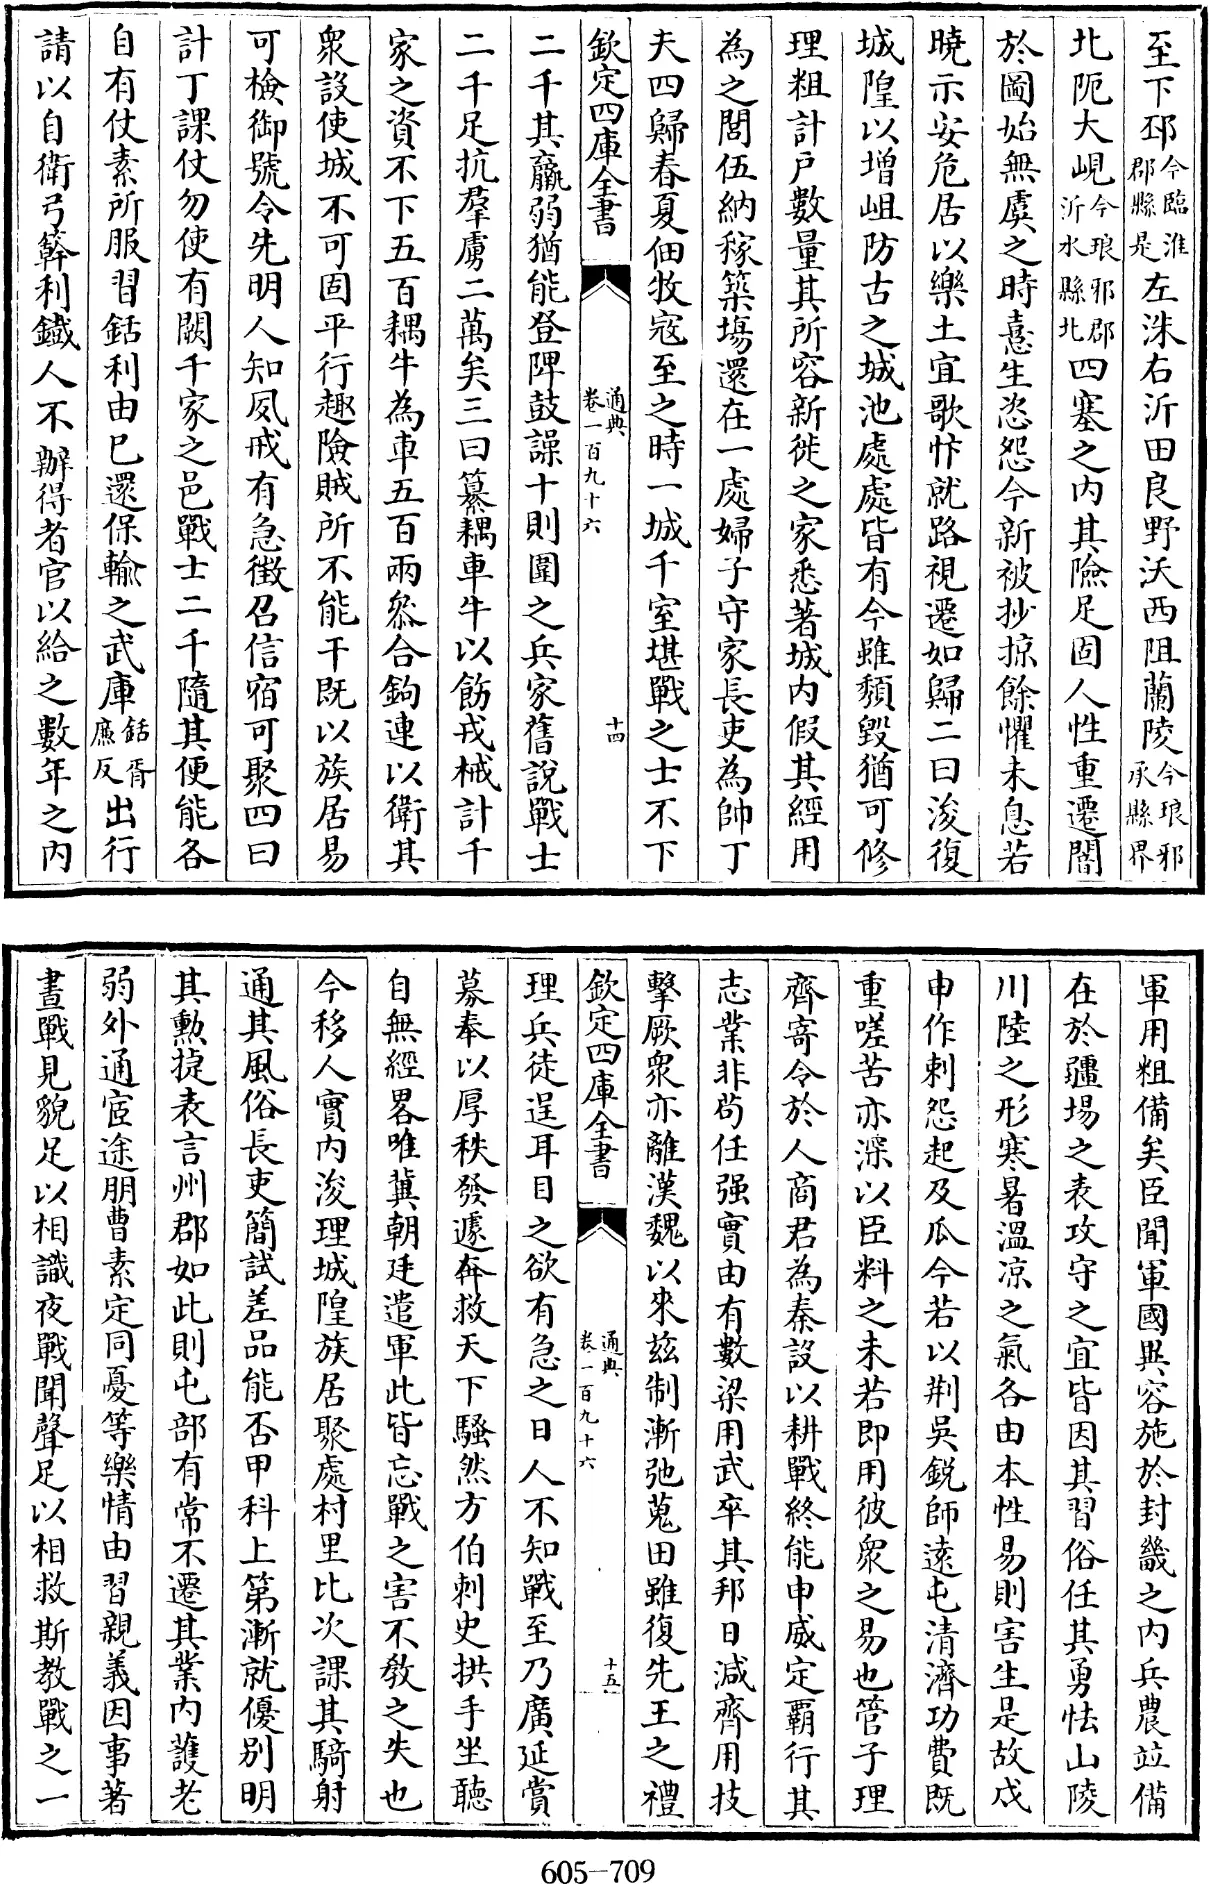 至下邳今臨淮郡縣是左洙右沂田良野沃西阻蘭陵今琅邪承縣界
北阨大峴今琅邪郡沂水縣北四塞之内其險足固人性重遷闇
於圖始無虞之時憙生恣怨今新被抄掠餘懼未息若
曉示安危居以樂土宜歌忭就路視遷如歸二曰浚復
城隍以增岨防古之城池處處皆有今雖頽毀猶可修
理粗計户數量其所容新徙之家悉著城内假其經用
為之閭伍納稼築場還在一處婦子守家長吏為帥丁
夫四歸春夏佃牧宼至之時一城千室堪戰之士不下
欽定四庫全書 通典卷一百九十六 十四
二千其羸弱猶能登陴鼓譟十則圍之兵家舊說戰士
二千足抗羣虜二萬矣三曰纂耦車牛以飭戎械計千
家之資不下五百耦牛為車五百兩叅合鉤連以衛其
衆設使城不可固平行趣險賊所不能干既以族居易
可檢御號令先明人知夙戒有急徵召信宿可聚四曰
計丁課仗勿使有闕千家之邑戰士二千隨其便能各
自有仗素所服習銛利由已還保輸之武庫銛胥廉反出行
請以自衛弓簳利鐵人不辦得者官以給之數年之内
軍用粗備矣臣聞軍國異容施於封畿之内兵農竝備
在於疆場之表攻守之宜皆因其習俗任其勇怯山陵
川陸之形寒暑温凉之氣各由本性易則害生是故戍
申作刺怨起及瓜今若以荆吳鋭師遠屯清濟功費既
重嗟苦亦深以臣料之未若即用彼衆之易也管子理
齊寄令於人商君為秦設以耕戰終能申威定霸行其
志業非苟任强實由有數梁用武卒其邦日減齊用技
擊厥衆亦離漢魏以來兹制漸弛蒐田雖復先王之禮
欽定四庫全書 通典卷一百九十六 十五
理兵徒逞耳目之欲有急之日人不知戰至乃廣延賞
募奉以厚秩發遽奔救天下騷然方伯刺史拱手坐聽
自無經畧唯冀朝廷遣軍此皆忘戰之害不敎之失也
今移人實内浚理城隍族居聚處村里比次課其騎射
通其風俗長吏簡試差品能否甲科上第漸就優别明
其勲捷表言州郡如此則屯部有常不遷其業内護老
弱外通宦途朋曹素定同憂等樂情由習親義因事著
晝戰見貌足以相識夜戰聞聲足以相救斯教戰之一
605-709